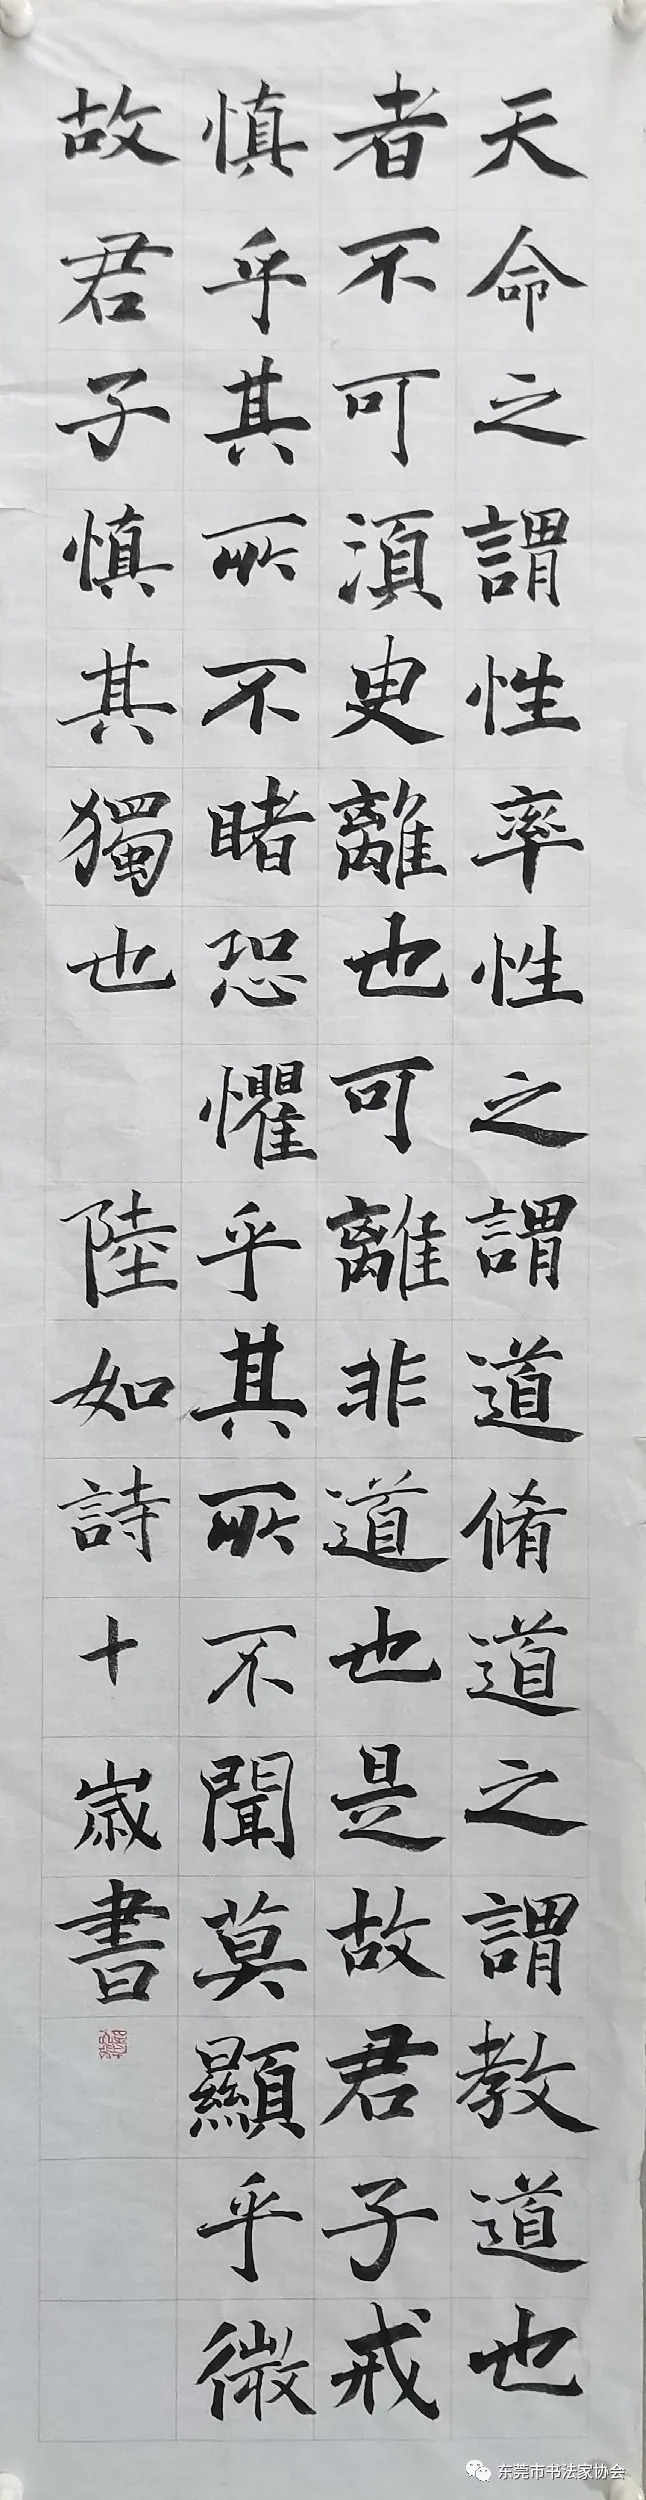 天命之謂性率性之謂道脩道之謂教道也
者不可須臾離也可離非道也是故君子戒
慎乎其所不睹恐懼乎其所不聞莫顯乎微
故君子慎其獨也 陸如詩十歲書
东莞市书法家协会